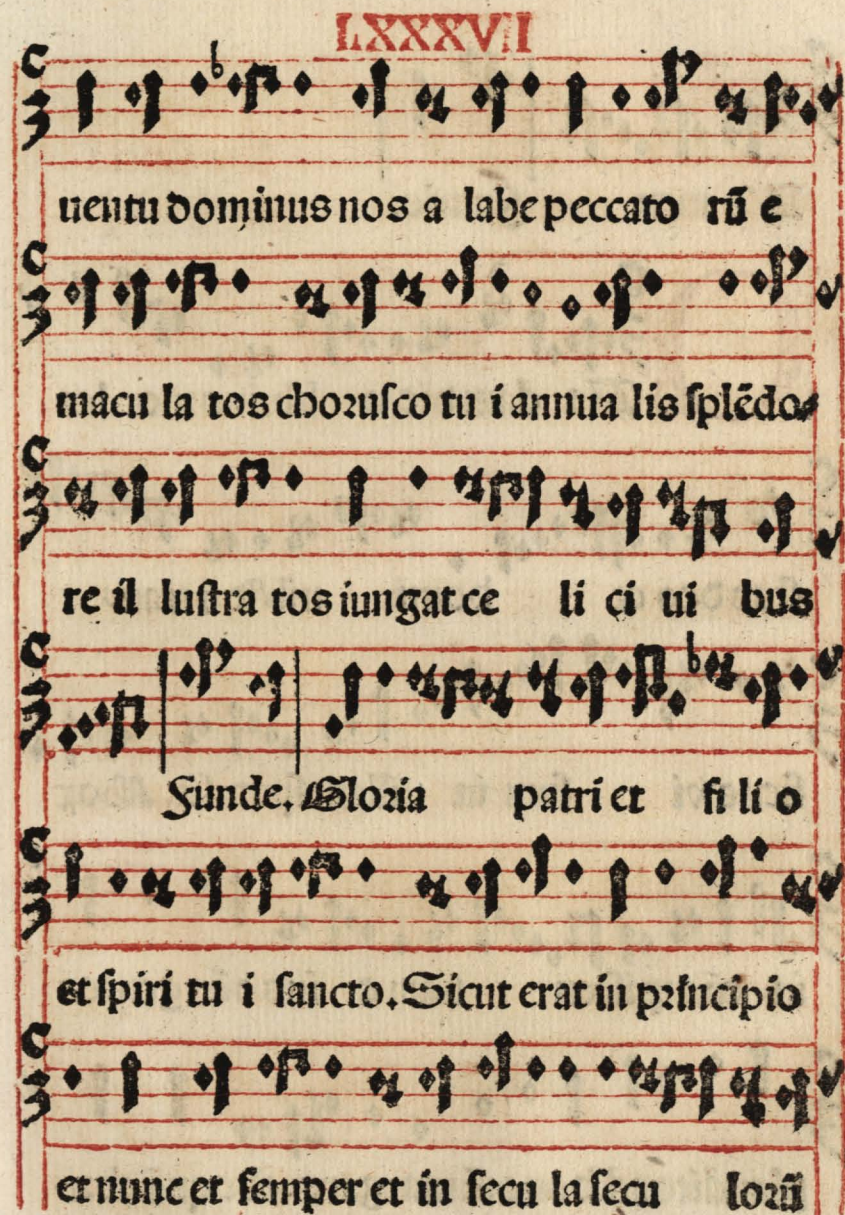 LXXXVII
uentu dominus nos a labe peccato rū e
macu la tos choꝛuſco tu i annua lis ſplēdo⸗
re il luſtra tos iungat ce li ci ui bus
Funde. Gloꝛia patri et fi li o
et ſpiri tu i ſancto. Sicut erat in pꝛincipio
et nunc et ſemper et in ſecu la ſecu loꝛū